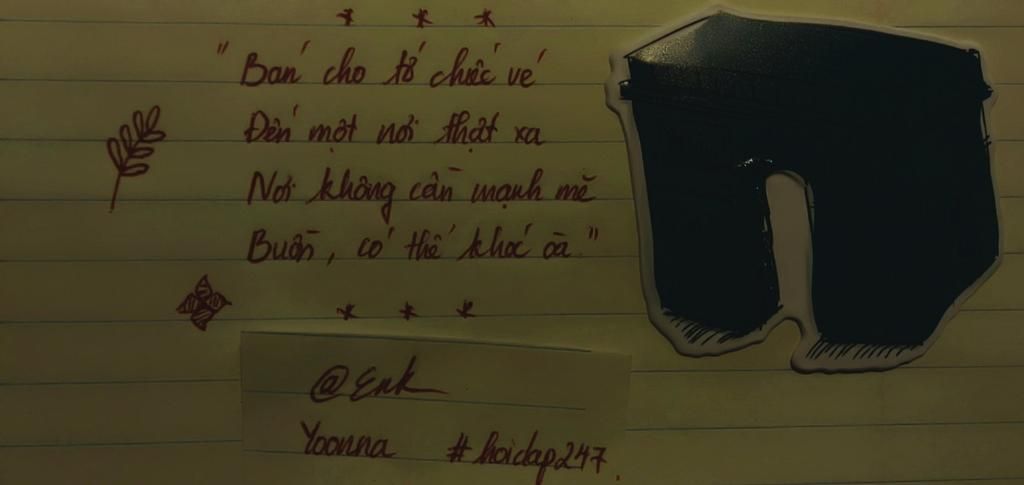 * * *
"Bán cho tớ chiếc vé
Đến một nơi thật xa
Nơi không cần mạnh mẽ
Buồn, có thể khóc oà."
* * *
@Enk
Yoonna #hoidap247